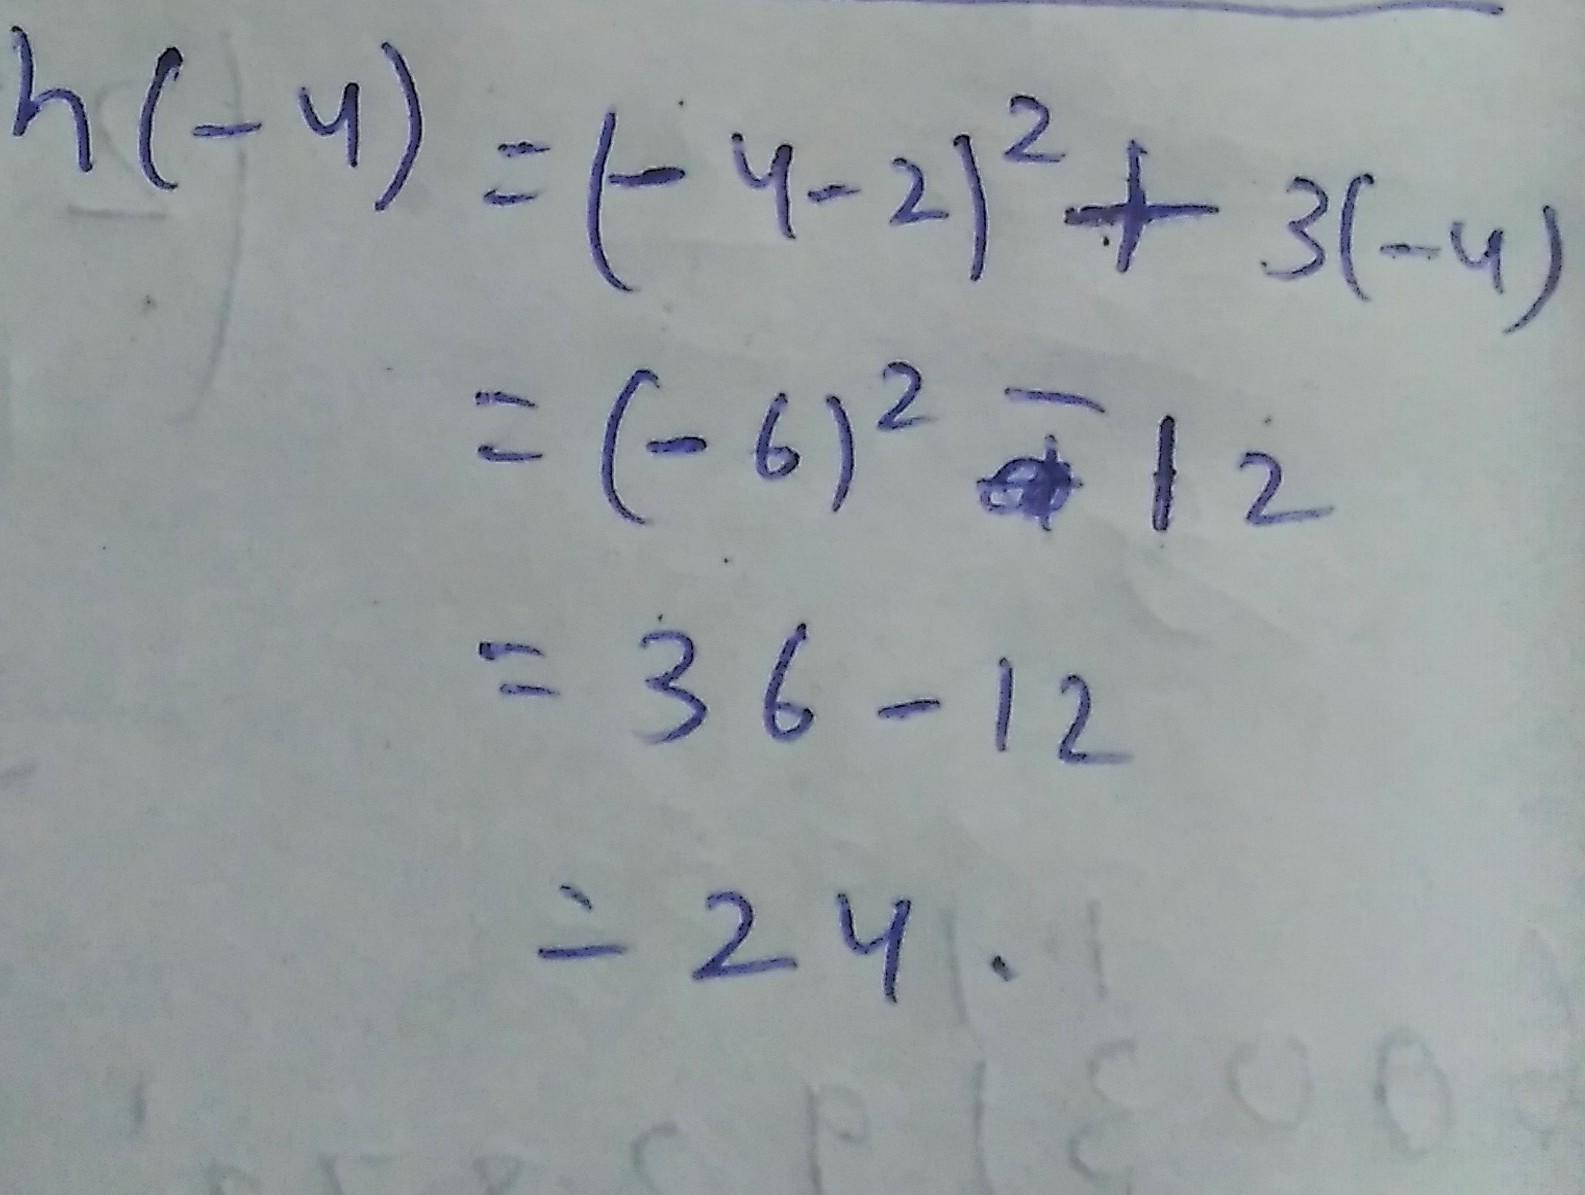 h(-4) = (-4-2)² + 3(-4)
= (-6)² - 12
= 36 - 12
= 24.